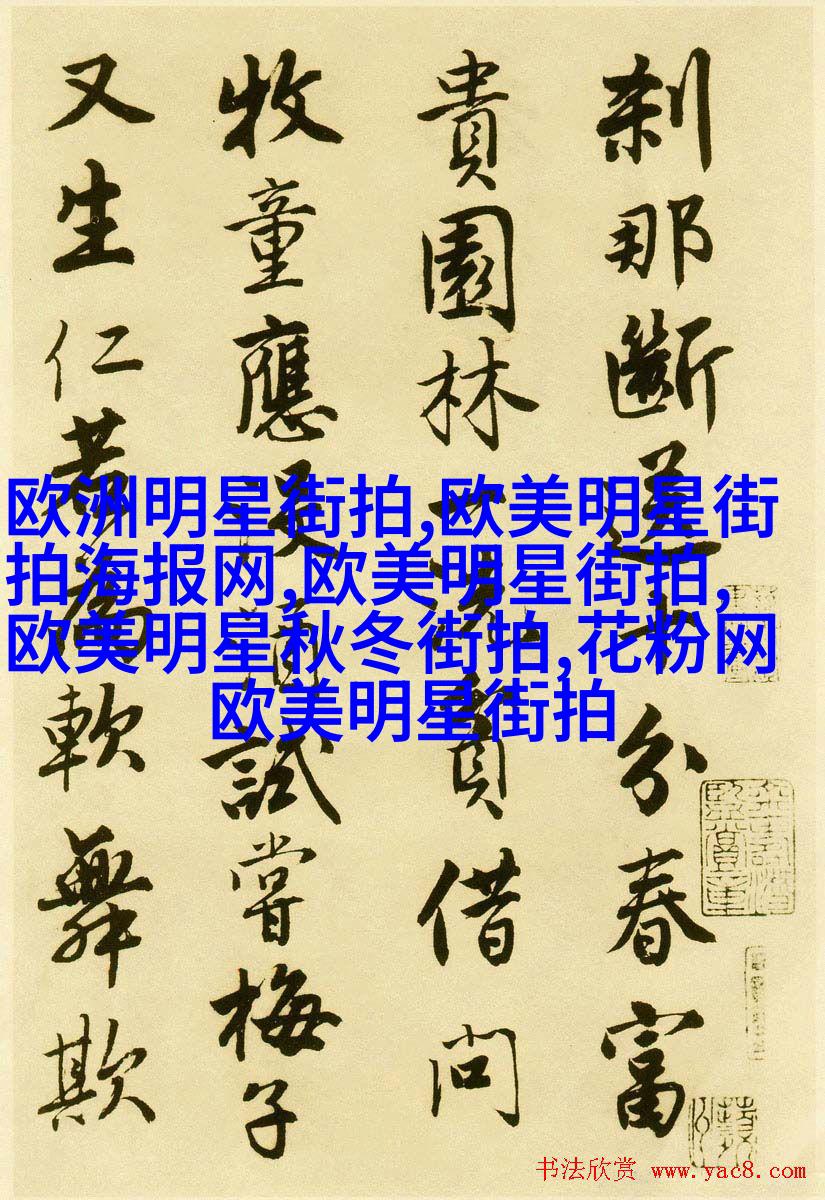 刹那斷送十分春富
貴園林一洗貧借問
牧童應沒酒試嘗梅子
又生仁若爲軟舞欺
欧洲明星街拍,欧美明星街
拍海报网,欧美明星街拍,
欧美明星秋冬街拍,花粉网
欧美明星街拍
书法欣赏 www.yac8.com